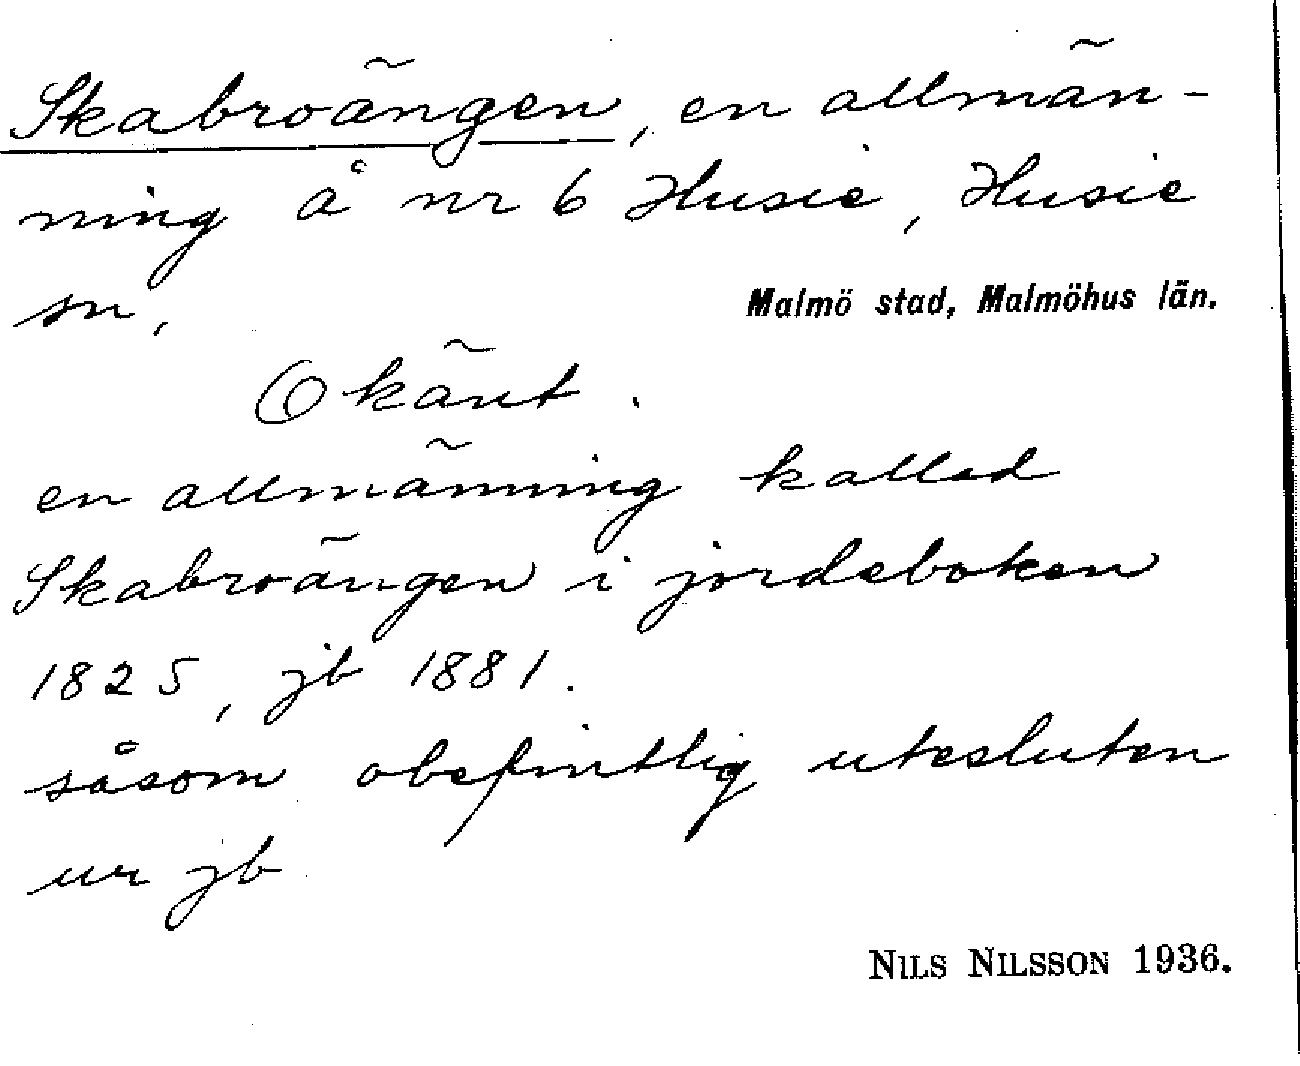 Skabroängen, en allmän-
ning å nr 6 Husie, Husie
sn,
Malmö stad, Malmöhus län.
Okänt.
en allmänning kallad
Skabroängen i jordeboken
1825, jb 1881.
såsom obefintlig utesluten
ur jb
NILS NILSSON 1936.